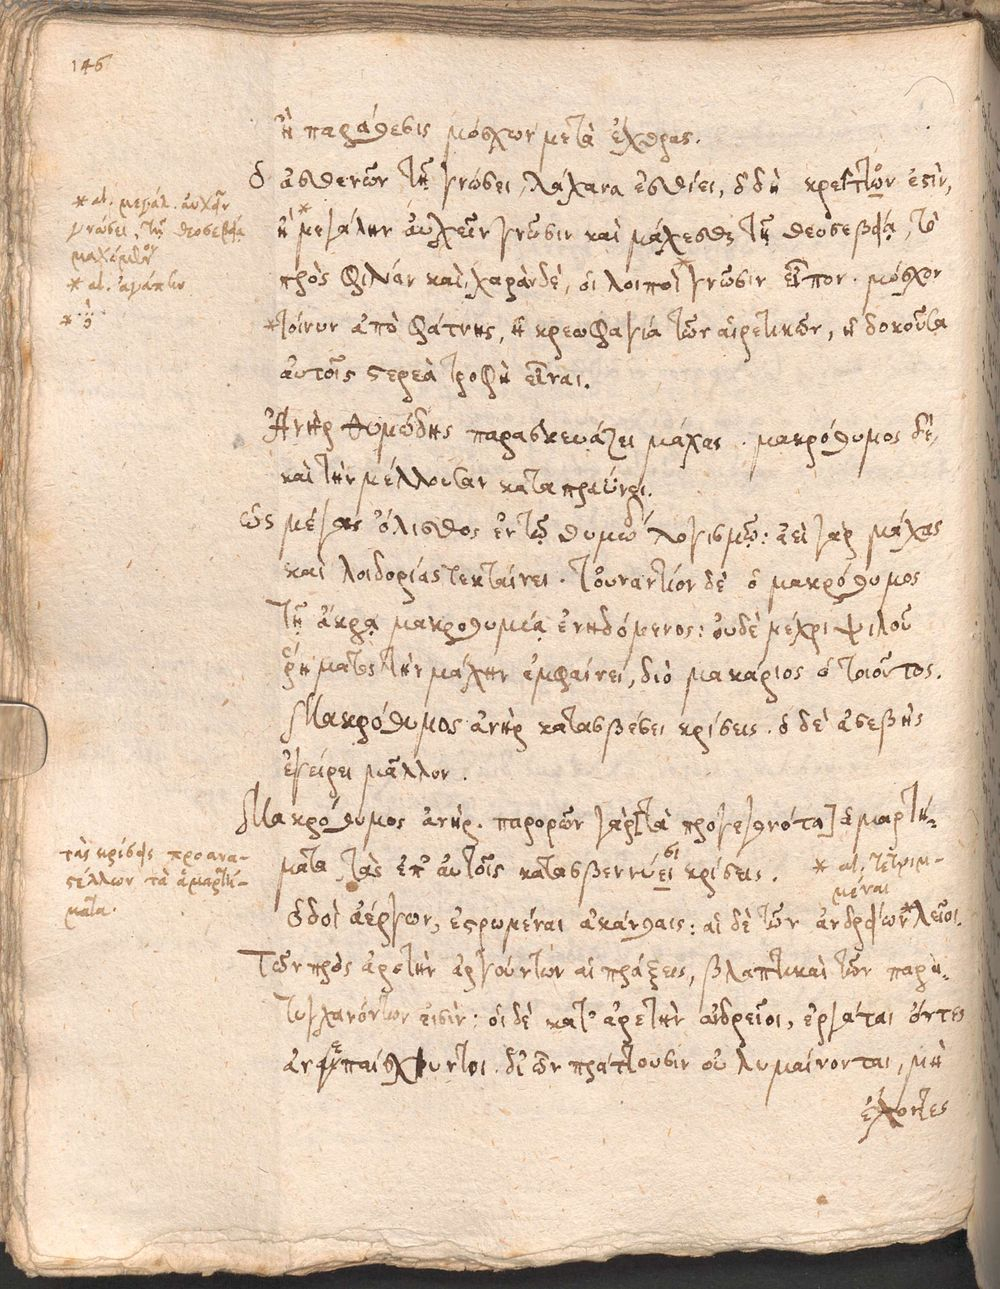 146
ἢ παράθεσις μόσχων μετὰ ἔχθρας.
ὁ ἀσθενῶν τῇ γνώσει, λάχανα ἐσθίει, ὃ δὴ κρεῖττον ἐστὶν,
ἢ* μεγάλην αὐχεῖν γνῶσιν καὶ μάχεσθαι τῇ θεοσεβείᾳ, τὸ
πρὸς φιλίαν καὶ, χάραν δὲ, οἱ λοιποὶ* γνῶσιν εἶπον. μόσχον
*τοίνυν ἀπὸ φάτνης, ἡ κρεωφαγία τῶν αἱρετικῶν, ἡ δοκοῦσα
αὐτοῖς στερεὰ τροφὴ εἶναι.
Ἀνὴρ θυμώδης παρασκευάζει μάχας. μακρόθυμος δὲ,
καὶ τὴν μέλλουσαν καταπραΰνει.
ὡς μέγας ὄλισθος ἐν τῷ θυμώδει λογισμῷ: ἀεὶ γὰρ μάχας
καὶ λοιδορίας τεκταίνει. τοὐναντίον δὲ ὁ μακρόθυμος
τῇ ἄκρᾳ μακροθυμίᾳ ἐνηδόμενος: οὐδὲ μέχρι ψιλοῦ
ῥήματος τὴν μάχην ἐμφαίνει, διὸ μακάριος ὁ τοιοῦτος.
Μακρόθυμος ἀνὴρ κατασβέσει κρίσεις. ὁ δὲ ἀσεβὴς
ἐγείρει μᾶλλον.
Μακρόθυμος ἀνὴρ. παρορῶν γὰρ [τὰ προγεγονότα] ἁμαρτή-
ματα, τὰς ἐπ' αὐτοῖς κατασβεννύει κρίσεις.
ὁδοὶ ἀέργων, ἐστρωμέναι ἀκάνθαις: αἱ δὲ τῶν ἀνδρείων* λεῖοι.
Τῶν πρὸς ἀρετὴν ἀργούντων αἱ πράξεις, βλαπτικαὶ τῶν παρα-
τυγχανόντων εἰσὶν: οἱ δὲ κατ' ἀρετὴν ἀνδρεῖοι, ἐργάται ὄντες
ἀνεπαίσχυντοι. δι' ὧν πράττουσιν οὐ λυμαίνονται, μὴ
ἔχοντες
* al. μεγάλ. αὐχῶν
γνώσει, τῇ θεοσεβείᾳ
μαχόμενον
* al. ἀγάπην
* ἢ
τὰς κρίσεις προανα-
στέλλων τὰ ἁμαρτή-
ματα.
* al. τετριμ-
μέναι